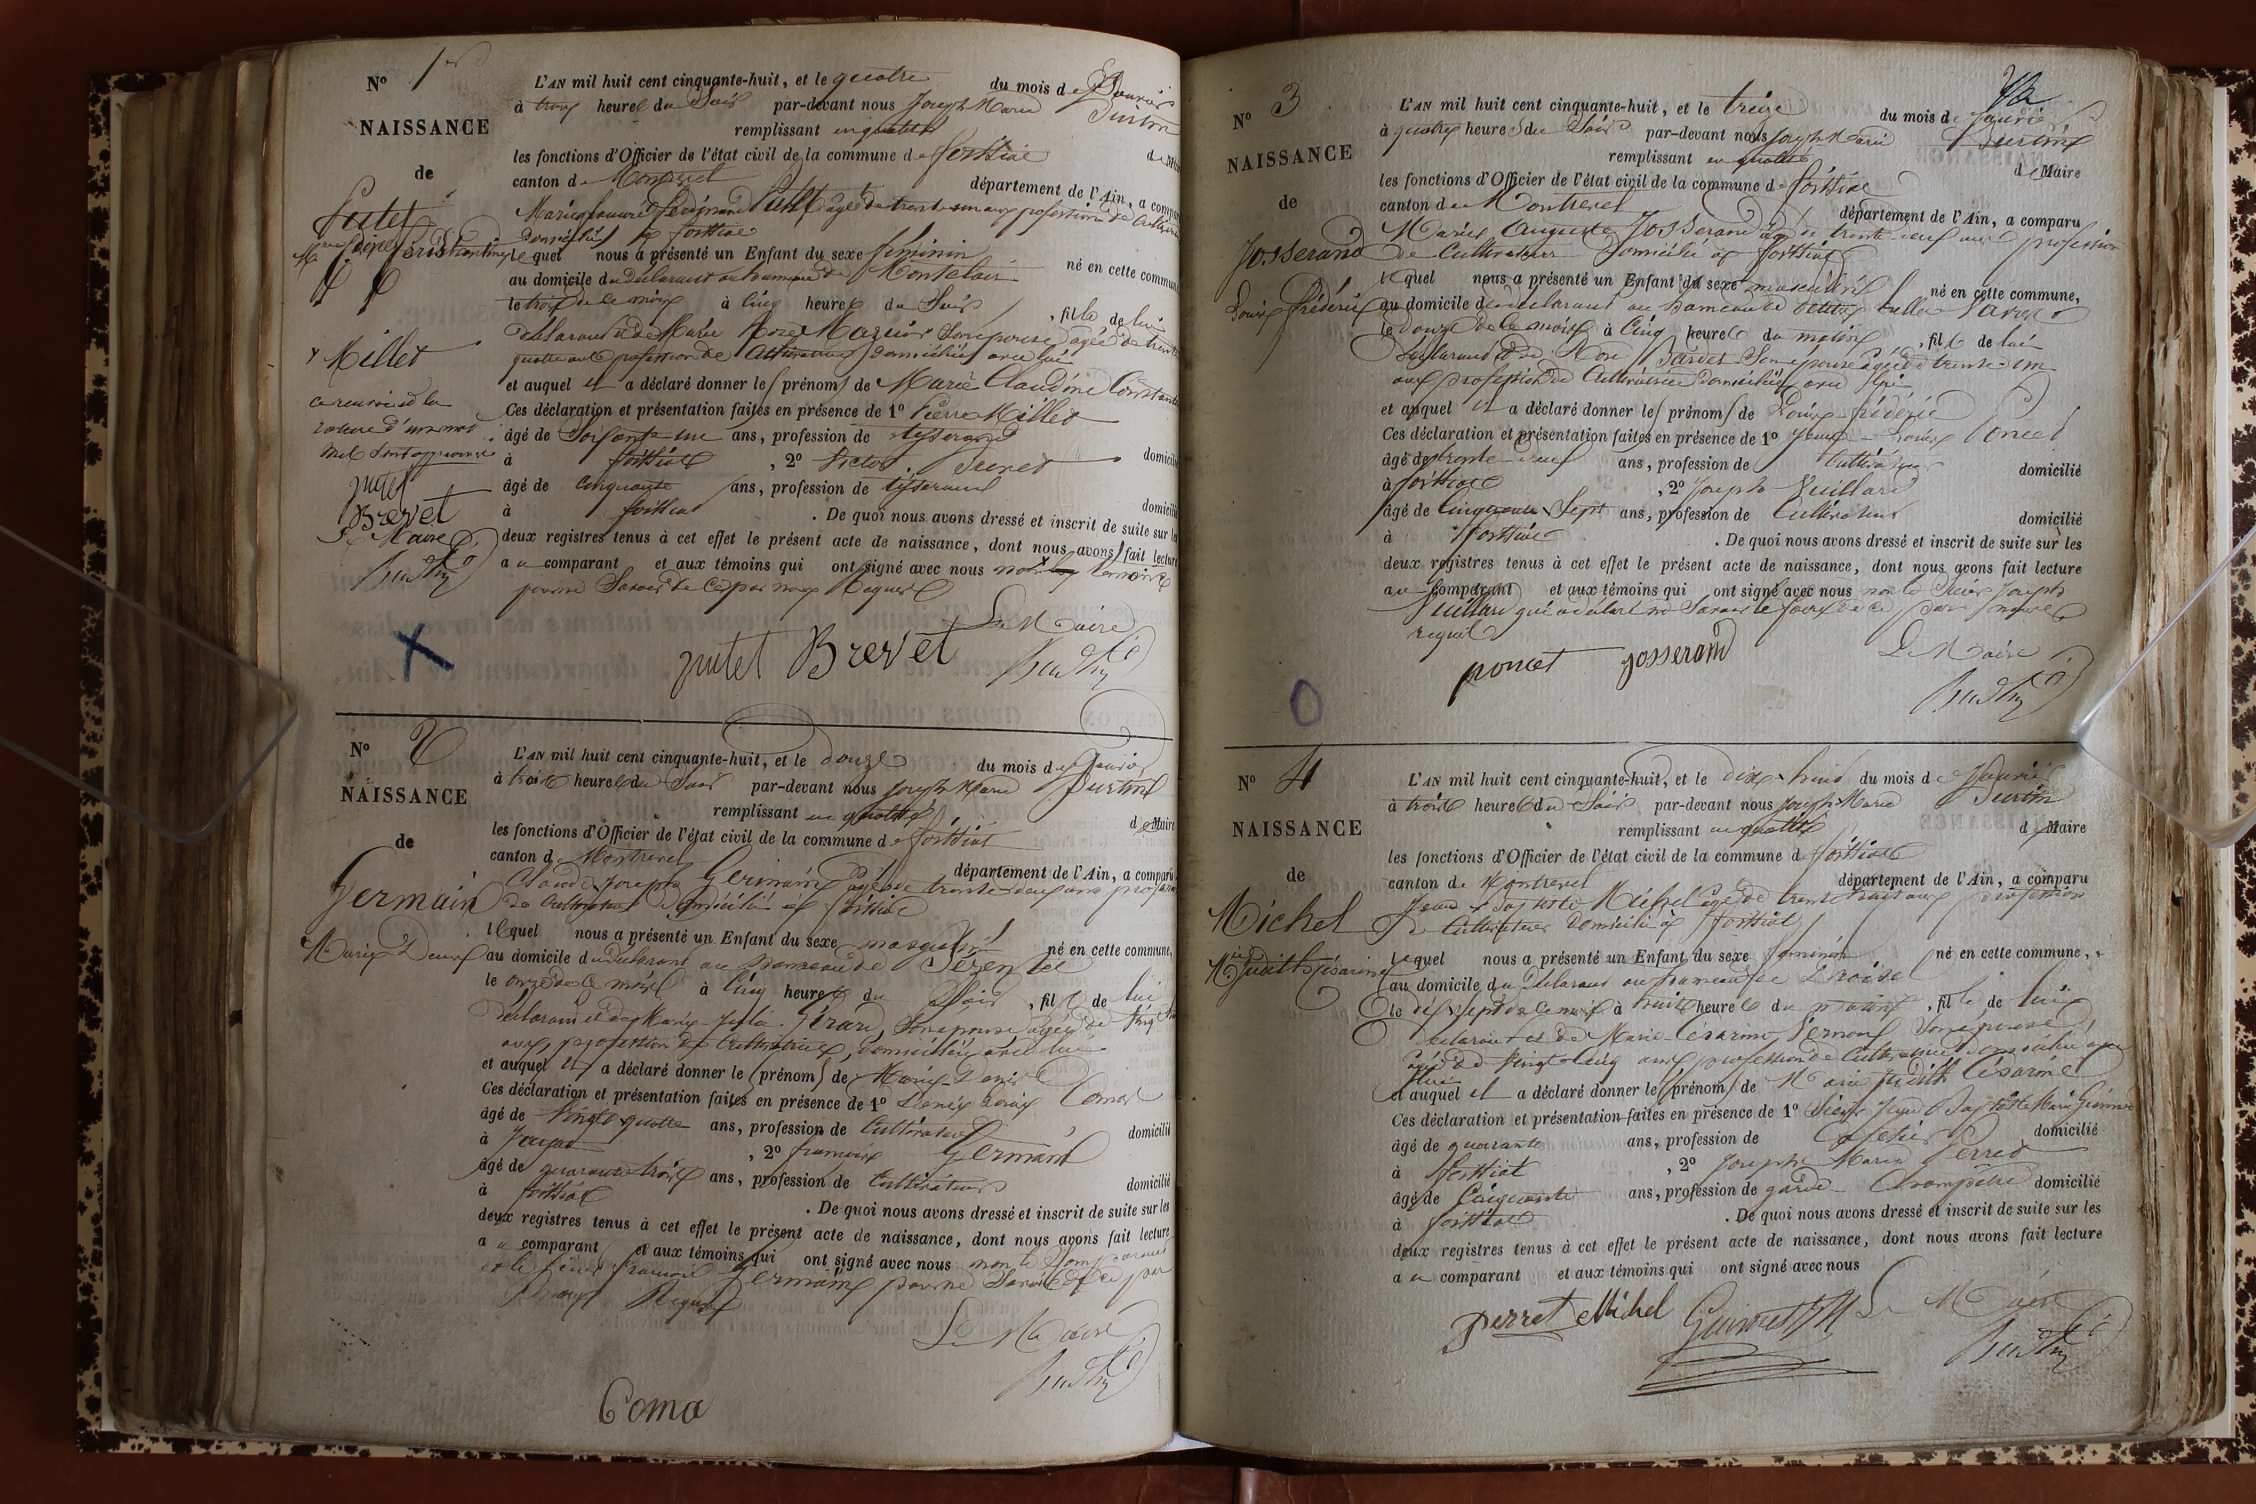 N° 1er
NAISSANCE
de
Putet
Mie Claudine Constantine
Millet
ce renvoi et la
rature d'un mot
nul sont approuvés
putet
Brevet
Le Maire
L'AN mil huit cent cinquante-huit, et le quatre du mois de Janvier
à trois heures du Soir par-devant nous Joseph Marie
remplissant en qualité
les fonctions d'Officier de l'état civil de la commune de foissiat de Maire
canton de Montrevel département de l'Ain, a comparu
Putet âgé de trente un ans profession de Cultivateur
Domicilié à foissiat
lequel nous a présenté un Enfant du sexe féminin né en cette commune
au domicile du déclarant au hameau de
le trois de ce mois à Cinq heures du Soir , fille de lui
déclarant et de Marie Son épouse âgée de trente
quatre ans profession de Cultivatrice domiciliée avec lui
et auquel il a déclaré donner les prénoms de Marie Claudine Constantine
Ces déclaration et présentation faites en présence de 1° Pierre Millet
âgé de Soixante un ans, profession de tisserand domicilié
à foissiat , 2° Victor Brevet
âgé de Cinquante ans, profession de tisserand domicilié
à foissiat . De quoi nous avons dressé et inscrit de suite sur les
deux registres tenus à cet effet le présent acte de naissance, dont nous avons fait lecture
au comparant et aux témoins qui ont signé avec nous
pour ne Savoir de ce par nous Requis
Le Maire
putet Brevet
N° 2
NAISSANCE
de
Germain
Marie Denis
L'AN mil huit cent cinquante-huit, et le douze du mois de Janvier
à trois heures du Soir par-devant nous Joseph Marie
remplissant en qualité de Maire
les fonctions d'Officier de l'état civil de la commune de foissiat
canton de Montrevel département de l'Ain, a comparu
Claude Joseph Germain âgé de trente deux ans profession
de Cultivateur Domicilié à foissiat
lequel nous a présenté un Enfant du sexe masculin né en cette commune,
au domicile du Déclarant au hameau de
le onze de ce mois à Cinq heures du Soir , fils de lui
déclarant et de Marie Gérard, Son épouse âgée de Vingt
ans, profession de Cultivatrice, domiciliée avec lui
et auquel il a déclaré donner les prénoms de Marie Denis
Ces déclaration et présentation faites en présence de 1° Denis Coma
âgé de Vingt quatre ans, profession de Cultivateur domicilié
à , 2° françois Germain
âgé de quarante trois ans, profession de Cultivateur domicilié
à foissiat . De quoi nous avons dressé et inscrit de suite sur les
deux registres tenus à cet effet le présent acte de naissance, dont nous avons fait lecture
au comparant et aux témoins qui ont signé avec nous non le Comparant
et le Sieur francois Germain pour ne Savoir de ce par
nous Requis
Le Maire
Coma
N° 3
NAISSANCE
de
Josserand
Louis frédéric
L'AN mil huit cent cinquante-huit, et le treize du mois de Janvier
à quatre heures du Soir par-devant nous Joseph Marie
remplissant en qualité de Maire
les fonctions d'Officier de l'état civil de la commune de foissiat
canton de Montrevel département de l'Ain, a comparu
Marie Auguste Josserand âgé de trente neuf ans profession
de Cultivateur domicilié à foissiat
lequel nous a présenté un Enfant du sexe masculin né en cette commune,
au domicile du déclarant au hameau de
le douze de ce mois à Cinq heures du matin , fils de lui
Déclarant et de Rose Son épouse âgée de trente un
ans profession de Cultivatrice domiciliée avec lui
et auquel il a déclaré donner les prénoms de Louis frédéric
Ces déclaration et présentation faites en présence de 1° Louis Poncet
âgé de trente neuf ans, profession de Cultivateur domicilié
à foissiat , 2° Joseph Vuillard
âgé de Cinquante Sept ans, profession de Cultivateur domicilié
à foissiat . De quoi nous avons dressé et inscrit de suite sur les
deux registres tenus à cet effet le présent acte de naissance, dont nous avons fait lecture
au comparant et aux témoins qui ont signé avec nous non le Sieur Joseph
Vuillard qui a déclaré ne Savoir le faire de ce par nous
requis
Le Maire
poncet josserand
N° 4
NAISSANCE
de
Michel
Mie Judith Césarine
L'AN mil huit cent cinquante-huit, et le dix huit du mois de Janvier
à trois heures du Soir par-devant nous Joseph Marie
remplissant en qualité de Maire
les fonctions d'Officier de l'état civil de la commune de foissiat
canton de Montrevel département de l'Ain, a comparu
Jean Baptiste Michel âgé de trente huit ans profession
de Cultivateur Domicilié à foissiat
lequel nous a présenté un Enfant du sexe féminin né en cette commune,
au domicile du Déclarant au hameau de
le dix sept de ce mois à huit heures du matin , fille de lui
déclarant et de Marie Césarine Son épouse
âgée de Vingt Cinq ans profession de Cultivatrice domiciliée avec
lui
et auquel il a déclaré donner les prénoms de Marie Judith Césarine
Ces déclaration et présentation faites en présence de 1° Sieur Jean Baptiste Marie
âgé de quarante ans, profession de domicilié
à foissiat , 2° Joseph Marie Perret
âgé de Cinquante ans, profession de garde Champêtre domicilié
à foissiat . De quoi nous avons dressé et inscrit de suite sur les
deux registres tenus à cet effet le présent acte de naissance, dont nous avons fait lecture
au comparant et aux témoins qui ont signé avec nous
perret Michel Le Maire